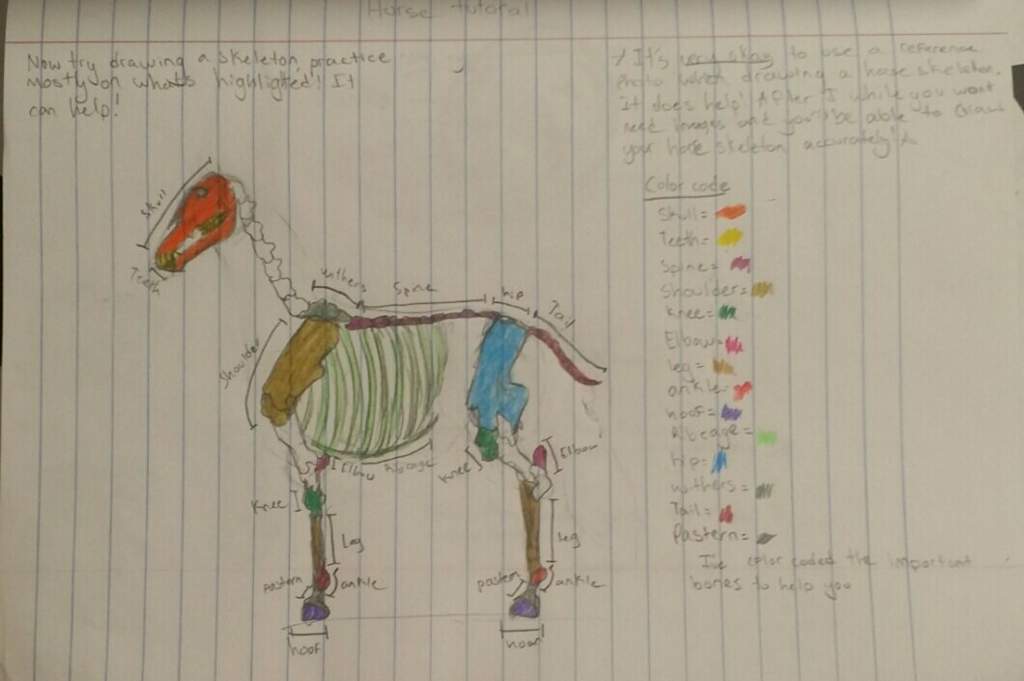 Horse tutorial
Now try drawing a skeleton practice
mostly on whats highlighted! It
can help!
It's very okay to use a reference
Photo when drawing a horse skeleton.
It does help! After I while you wont
need images and you'll be able to draw
your horse skeleton accurately!
Color code
Skull=
Teeth=
Spine=
Shoulder=
Knee=
Elbow=
leg=
ankle=
hoof=
Ribcage=
hip=
withers=
Tail=
Pastern=
I've color coded the important
bones to help you
Skull
Teeth
withers
Spine
hip
Tail
Shoulder
Elbow
Ribcage
Knee
Elbow
Knee
Leg
leg
pastern
ankle
pastern
ankle
hoof
hoof